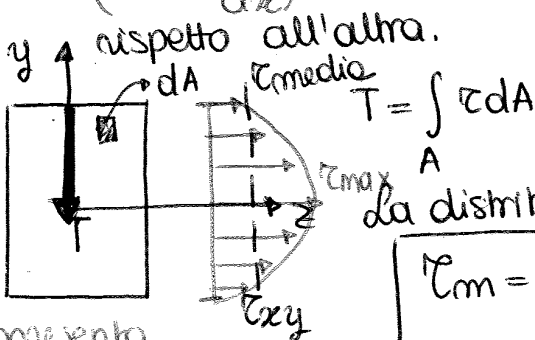 dx
rispetto all'altra.
y
dA
τmedia
T = ∫ τdA
A
τmax
z
T
La distri
τm =
τxy